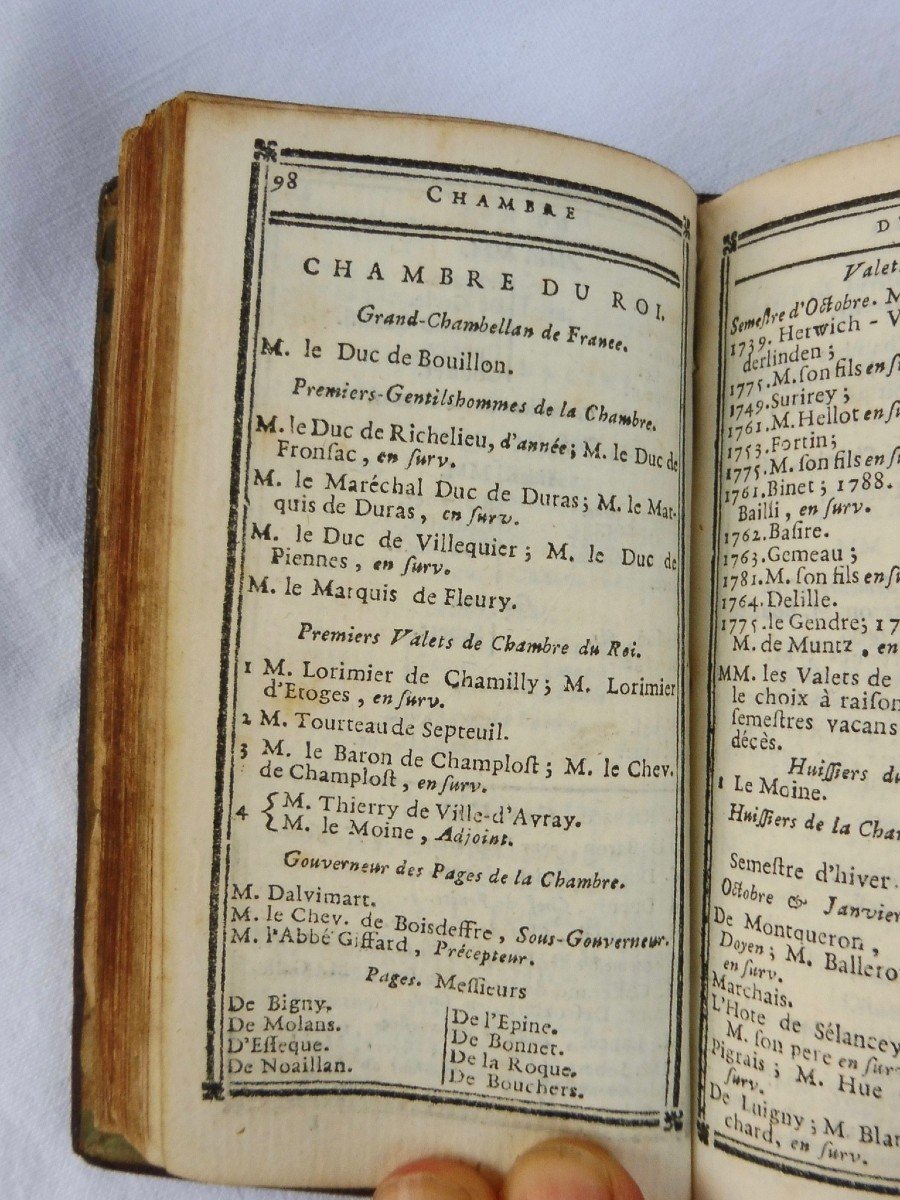 98
CHAMBRE
CHAMBRE DU ROI.
Grand-Chambellan de France.
M. le Duc de Bouillon.
Premiers-Gentilshommes de la Chambre.
M. le Duc de Richelieu, d'année; M. le Duc de
Fronſac, en ſurv.
M. le Maréchal Duc de Duras; M. le Mar-
quis de Duras, en ſurv.
M. le Duc de Villequier; M. le Duc de
Piennes, en ſurv.
M. le Marquis de Fleury.
Premiers Valets de Chambre du Roi.
1 M. Lorimier de Chamilly; M. Lorimier
d'Etoges, en ſurv.
2 M. Tourteau de Septeuil.
3 M. le Baron de Champloſt; M. le Chev.
de Champloſt, en ſurv.
4 { M. Thierry de Ville-d'Avray.
M. le Moine, Adjoint.
Gouverneur des Pages de la Chambre.
M. Dalvimart.
M. le Chev. de Boisdeffre, Sous-Gouverneur.
M. l'Abbé Giffard, Précepteur.
Pages. Meſſieurs
De Bigny.
De Molans.
D'Eſſeque.
De Noaillan.
De l'Epine.
De Bonnet.
De la Roque.
De Bouchers.
D
Valets
Semeſtre d'Octobre. M
1739. Herwich - V
derlinden;
1775. M. ſon fils en ſu
1749. Surirey;
1761. M. Hellot en ſu
1753. Fortin;
1775. M. ſon fils en ſu
1761. Binet; 1788.
Bailli, en ſurv.
1762. Baſire.
1763. Gemeau;
1781. M. ſon fils en ſu
1764. Delille.
1775. le Gendre; 17
M. de Muntz, en
MM. les Valets de
le choix à raiſon
ſemeſtres vacans
décès.
Huiſſiers du
1 Le Moine.
Huiſſiers de la Cha
Semeſtre d'hiver.
Octobre & Janvier
De Montqueron,
Doyen; M. Ballero
en ſurv.
Marchais.
L'Hote de Sélancey
M. ſon pere en ſur
Pigrais; M. Hue
ſurv.
De Luigny; M. Blan
chard, en ſurv.